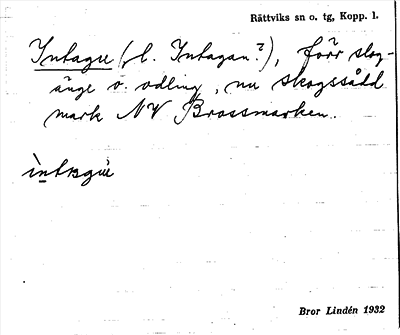 Rättviks sn o. tg, Kopp. l.
Intagu (, l. Intagan?), förr slog-
änge o. odling, nu skogssådd
mark NV Brossmarken.
ìntagu
Bror Lindén 1932